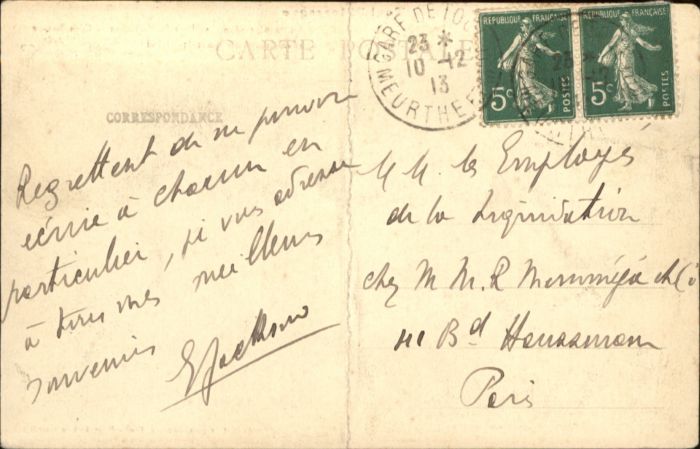 CARTE POSTALE
CORRESPONDANCE
Regrettant de ne pouvoir
écrire à chacun en
particulier, je vous adresse
à tous mes meilleurs
souvenirs
GARE DE
23 *
10 -12
13
MEURTHE
REPUBLIQUE FRANÇAISE
5c
POSTES
REPUBLIQUE FRANÇAISE
5c
POSTES
M M. les Employés
de la Liquidation
chez M M. R
Bd Haussmann
Paris